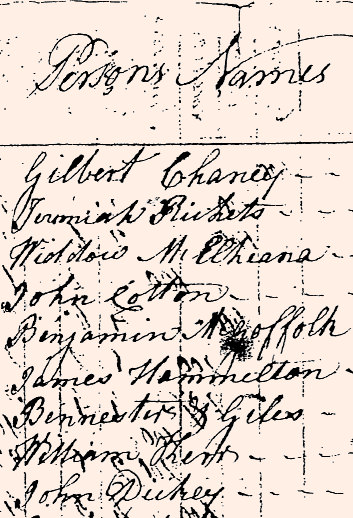 Persons Names
Gilbert Chaney
Jeremiah Rickets
Widdow McElheana
John Cotton
Benjamin
James Hammelton
Bennester & Giles
William Kerr
John Dickey